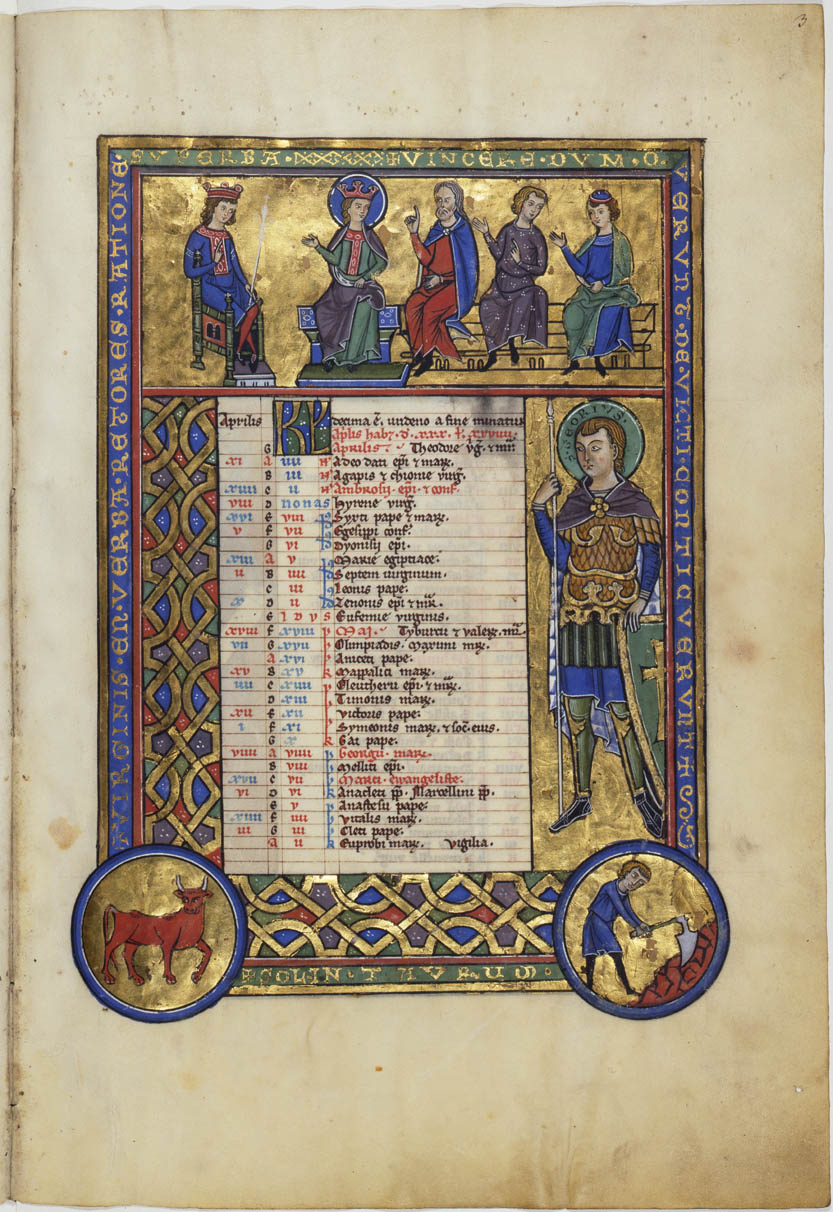 3
SVPERBA · VINCERE · DVM · Q
VERVNT · DE · VICTI · CONTICVERVNT
VIRGINIS · EN · VERBA · RETORES · RATIONE ·
Aprilis KL decima ē. undeno a fine minatur
Aprilis · Theodore
xi a iiii Adeodati epī & mar.
b iii Agapis & chionie virg.
xviiii c ii Ambrosii · epī · & conf.
viii d nonas Hyrene virg.
xvi e viii Syxti pape & mar.
v f vii Egesippi conf.
g vi Dyonisii epī.
xiii a v Marie egiptiace.
ii b iiii Septem virginum.
c iii Leonis pape.
x d ii Zenonis epī &
e idus Eufemie virginis.
xviii f xviii Maj. Tyburcii & valer.
vii g xvii Olimpiadis. Maximi
a xvi Aniceti pape.
xv b xv Mappalici mar.
iiii c xiiii Eleutherii epī &
d xiii Timonis mar.
xii e xii victoris pape.
i f xi Symeonis mar. & soc. eius.
g x Gai pape.
viiii a viiii Georgii mar.
b viii Melliti epī.
xvii c vii Marci · ewangeliste.
vi d vi Anacleti pp. Marcellini pp.
e v Anastasii pape.
xiiii f iiii vitalis mar.
iii g iii Cleti pape.
a ii Euprobi mar. vigilia.
GEORIVS
COLIN · TAVRUM ·